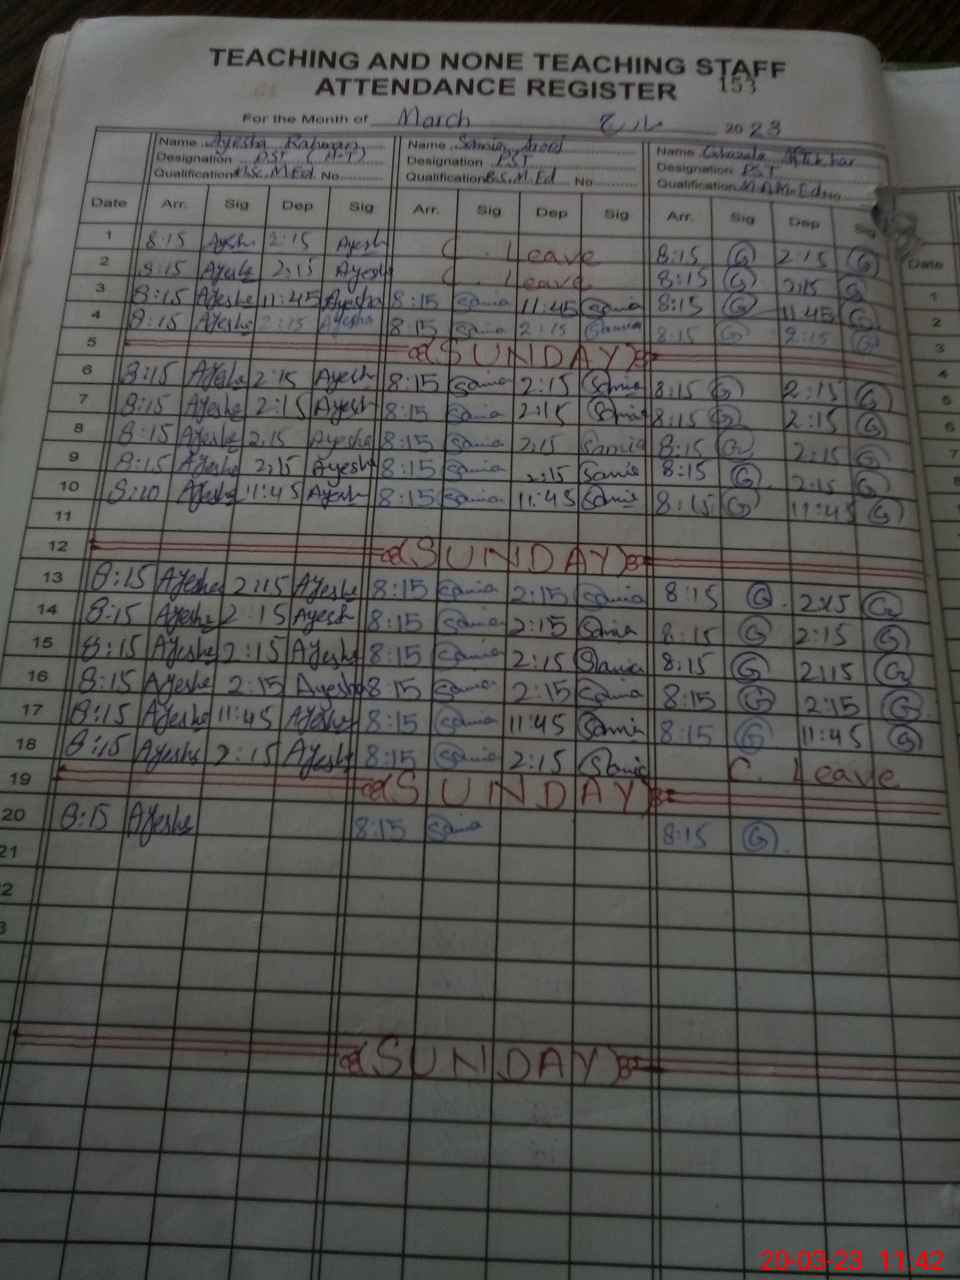 TEACHING AND NONE TEACHING STAFF
ATTENDANCE REGISTER 153
For the Month of March مارچ 2023
Name Ayesha Rahman Name Name
Designation PST Designation PST Designation PST
Qualification M.Ed No. Qualification M.Ed No. Qualification M.A M.Ed No
Date Arr. Sig Dep Sig Arr. Sig Dep Sig Arr. Sig Dep Sig
1 8:15 Ayesh 2:15 Ayesh C. Leave 8:15 G 2:15 G
2 8:15 Ayeshe 2:15 Ayesh C. Leave 8:15 G 2:15 G
3 8:15 Ayeshe 11:45 Ayesha 8:15 Sania 11:45 Sania 8:15 G 11:45 G
4 8:15 Ayeshe 2:15 Ayesha 8:15 Sania 2:15 Sania 8:15 G 2:15 G
5 SUNDAY
6 8:15 Ayesha 2:15 Ayesh 8:15 Sania 2:15 Sania 8:15 G 2:15 G
7 8:15 Ayeshe 2:15 Ayesh 8:15 Sania 2:15 Sania 8:15 G 2:15 G
8 8:15 Ayeshe 2:15 Ayesha 8:15 Sania 2:15 Sania 8:15 G 2:15 G
9 8:15 Ayeshe 2:15 Ayesha 8:15 Sania 2:15 Sania 8:15 G 2:15 G
10 8:10 Ayeshe 11:45 Ayesh 8:15 Sania 11:45 Sania 8:15 G 11:45 G
11
12 SUNDAY
13 8:15 Ayeshe 2:15 Ayeshe 8:15 Sania 2:15 Sania 8:15 G 2:15 G
14 8:15 Ayeshe 2:15 Ayesh 8:15 Sania 2:15 Sania 8:15 G 2:15 G
15 8:15 Ayeshe 2:15 Ayeshe 8:15 Sania 2:15 Sania 8:15 G 2:15 G
16 8:15 Ayeshe 2:15 Ayesha 8:15 Sania 2:15 Sania 8:15 G 2:15 G
17 8:15 Ayeshe 11:45 Ayeshe 8:15 Sania 11:45 Sania 8:15 G 11:45 G
18 8:15 Ayeshe 2:15 Ayesh 8:15 Sania 2:15 Sania C. Leave
19 SUNDAY
20 8:15 Ayeshe 8:15 Sania 8:15 G
21
2
3
SUNDAY
Date
1
2
3
4
5
6
7
8
20-03-23 11:42